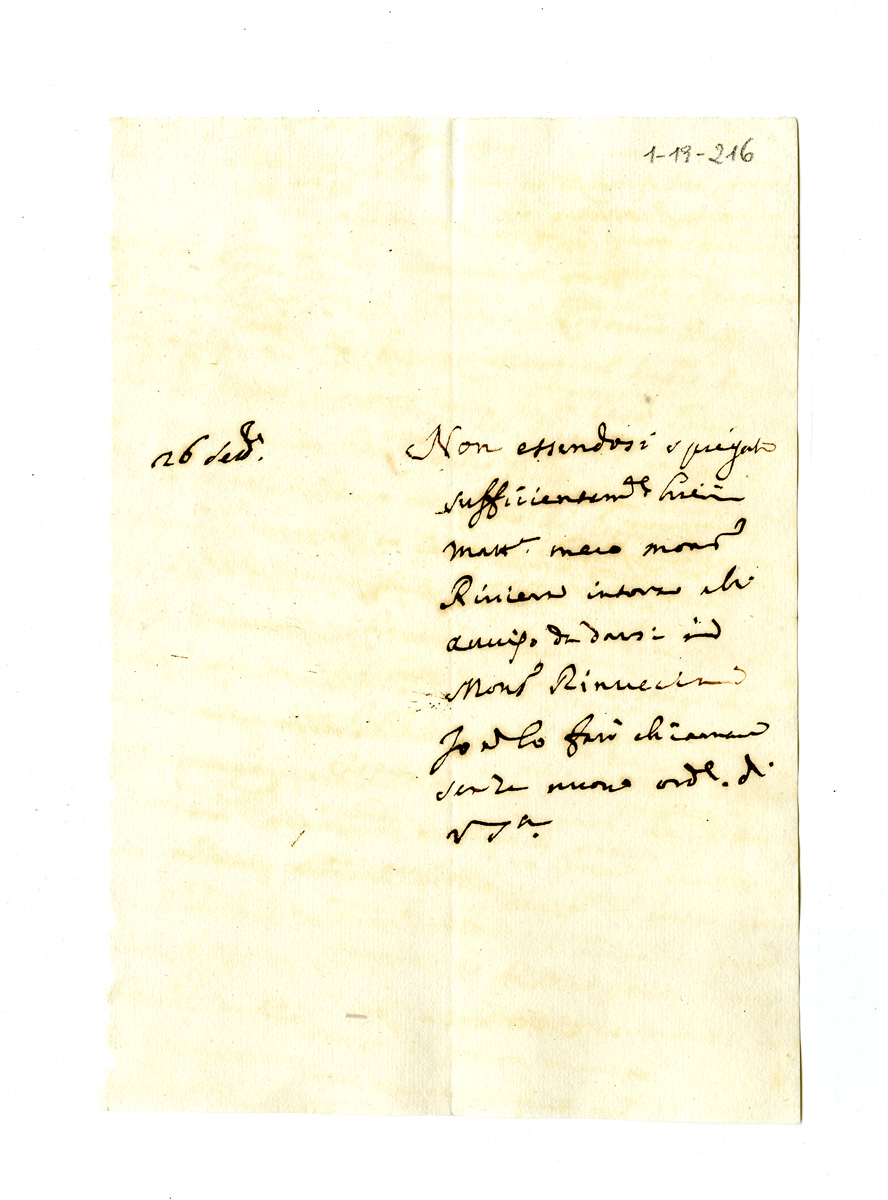 1-19-216
26 Sed.
Non essendosi spiegato
sufficientem.te hieri
matt.a meco Mons.r
Riviera intorno all'
avviso da darsi
Mons.r Rinuccini
Io lo farò chiamare
senza nuovo ord.e di
V S.a.